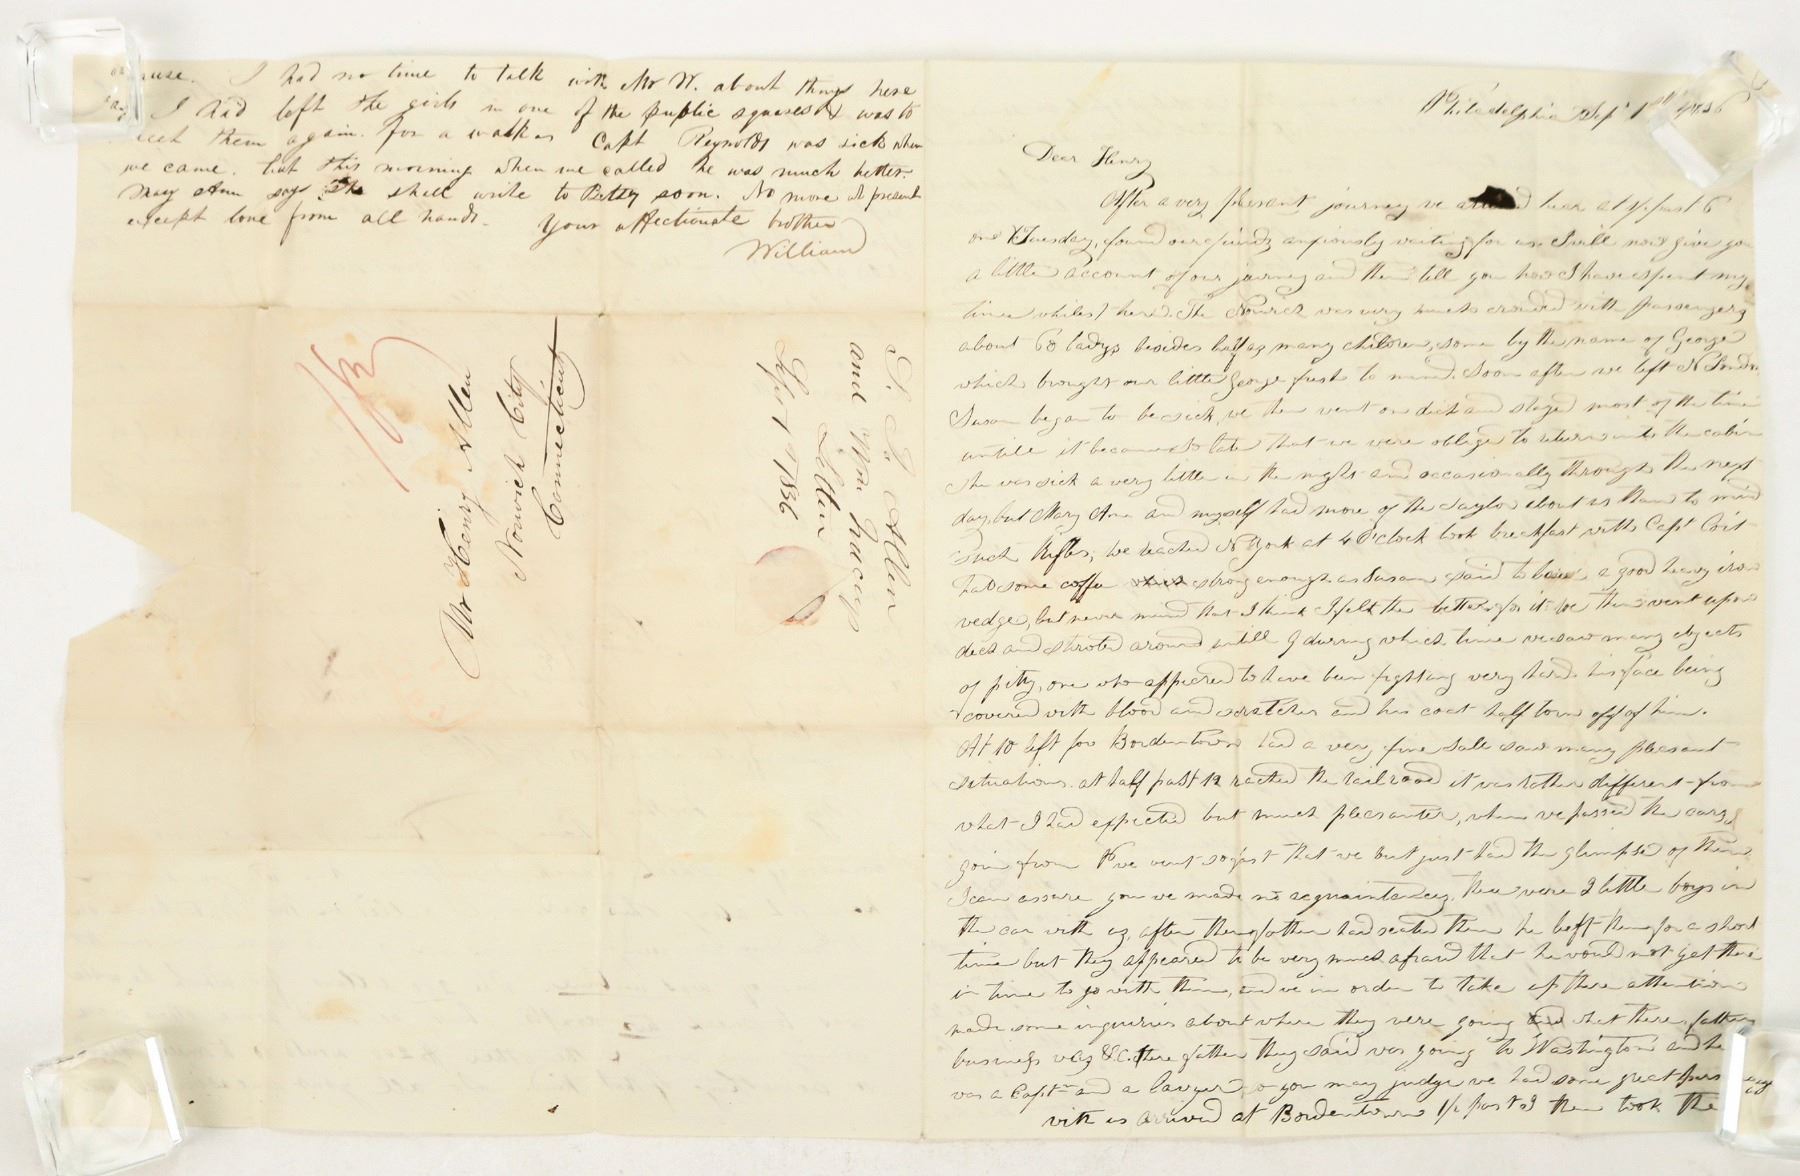 Philadelphia Sept 1st 1836
Dear Henry
After a very plesant journey we arrived hear at ½ past 6
one Tuesday, found our friends anxiously waiting for us. I will now give you
a little account of our journey and then tell you how I have spent my
time whilest here. The Norwich was very much crowded with passengers
about 60 ladys besides half as many children, some by the name of George
which brought our little George fresh to mind. Soon after we left N Londn
Susan began to be sick, we then went on deck and stayed most of the time
untill it became so late that we were obliged to return into the cabin
she was sick a very little in the night and occasionally through the next
day, but Mary Ann and myself had more of the Saylor about us than to mind
such trifles, we reached N York at 4 O'clock took breakfast with Capt Coit
had some coffee strong enough as Susan said to bear a good heavy iron
wedge, but never mind that I think I felt the better for it. we then went upon
deck and stroled around untill 9 during which time we saw many objects
of pity, one who appeared to have been fighting very hard his face being
covered with blood and scratches and his coat half torn off of him.
At 10 left for Bordentown had a very fine sale saw many pleasant
situations. at half past 12 reached the railroad it was rather different from
what I had expected but much pleasanter, when we passed the cars
goin from P we went so fast that we but just had the glimpse of them
I can assure you we made no acquaintances, there were 2 little boys in
the car with us, after there father had seated them he left them for a short
time but they appeared to be very much afraid that he would not get there
in time to go with them, and we in order to take up there attention
made some inquiries about where they were going and what there father
business was &c. there father they said was going to Washington and he
was a Captn and a lawyer so you may judge we had some great
with us arrived at Bordentown ½ past 3 then took the
I had no time to talk with Mr W. about things here
I had left the girls in one of the public squares & was to
meet them again for a walk. Capt Reynolds was sick when
we came, but this morning when we called he was much better.
Mary Ann says she shall write to Betsy soon. No more at present
except love from all hands. Your affectionate brother
William
Mr Henry Allen
Norwich City
Connecticut
S. S. Allen
and Wm
Letter
Sept 1st 1836